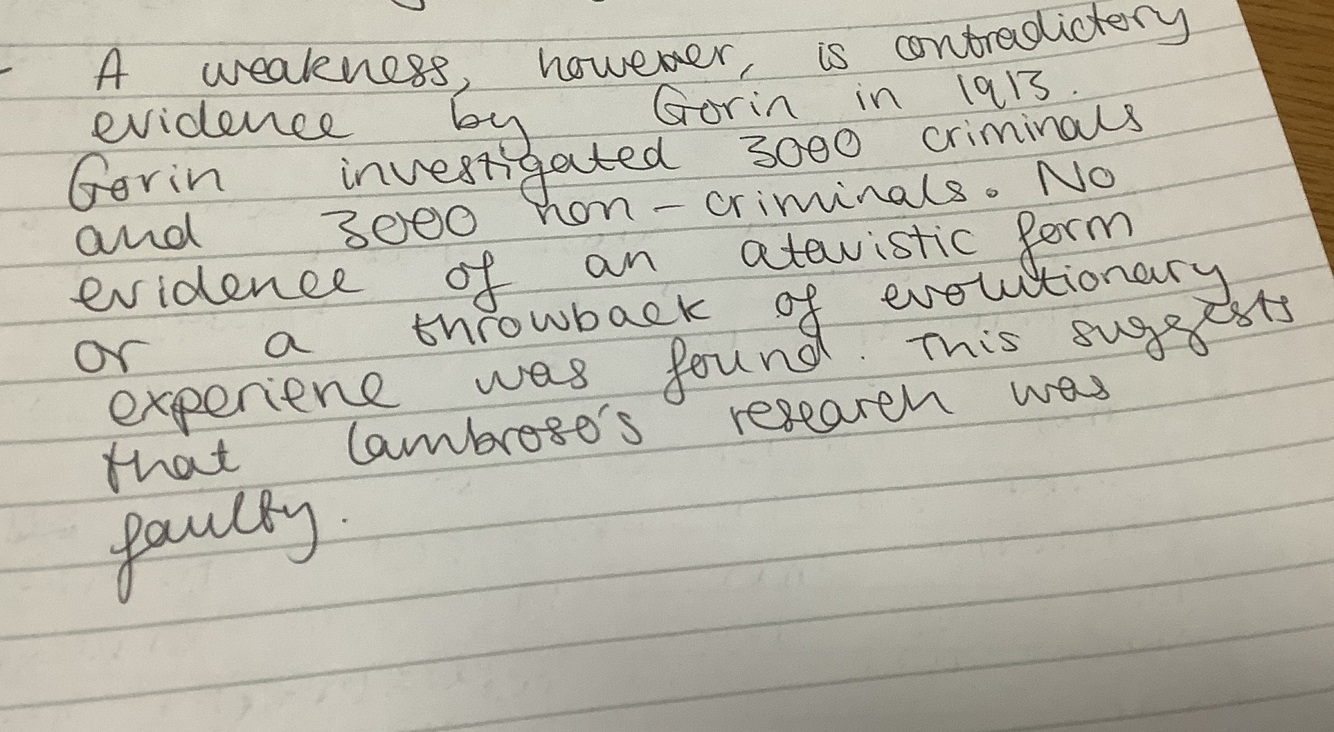 A weakness, however, is contradictory
evidence by Gorin in 1913.
Gorin investigated 3000 criminals
and 3000 non-criminals. No
evidence of an atavistic form
or a throwback of evolutionary
experiene was found. This suggests
that Lambroso's research was
faulty.